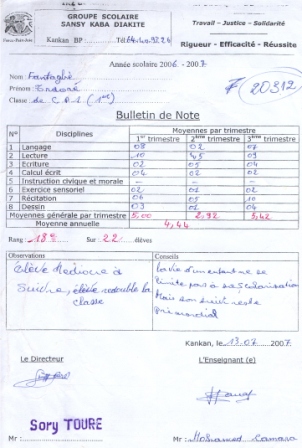 GROUPE SCOLAIRE
SANSY KABA DIAKITE
Kankan BP
Travail - Justice - Solidarité
Rigueur - Efficacité - Réussite
Année scolaire 2006 - 2007
Nom :
Prénom :
20312
Classe :
Bulletin de Note
N° Disciplines Moyennes par trimestre
1er trimestre 2ème trimestre 3ème trimestre
1 Langage 08 02 07
2 Lecture 10
3 Ecriture 02
4 Calcul écrit 04 02 02
5 Instruction civique et morale -
6 Exercice sensoriel 02 01 02
7 Récitation 06 05 10
8 Dessin 03 01 04
Moyennes générale par trimestre 5,00 2,92 5,42
Moyenne annuelle 4,44
Rang : 18e Sur 22 élèves
Observations Conseils
élève médiocre à
suivre, élève redouble la
classe
La vie d'un enfant ne se
limite pas à sa scolarisation
Mais son suivi reste
primordial
Kankan, le 13.07 2007
Le Directeur L'Enseignant (e)
Sory TOURE
Mr : Mr : Mohamed Camara